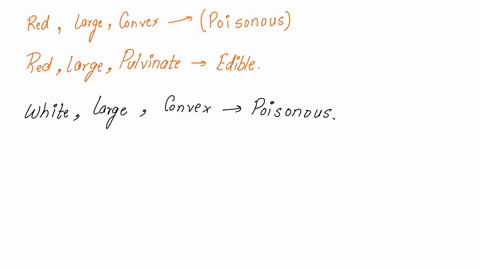 Red, Large, Convex → (Poisonous)
Red, Large, Pulvinate → Edible.
White, Large, Convex → Poisonous.